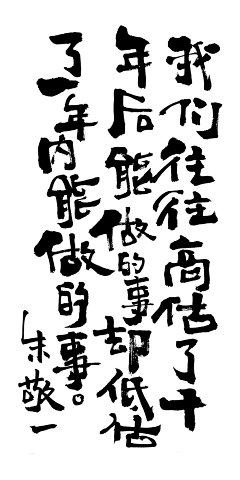 我们往往高估了千
年后能做的事却低估
了一年内能做的事。
朱敬一